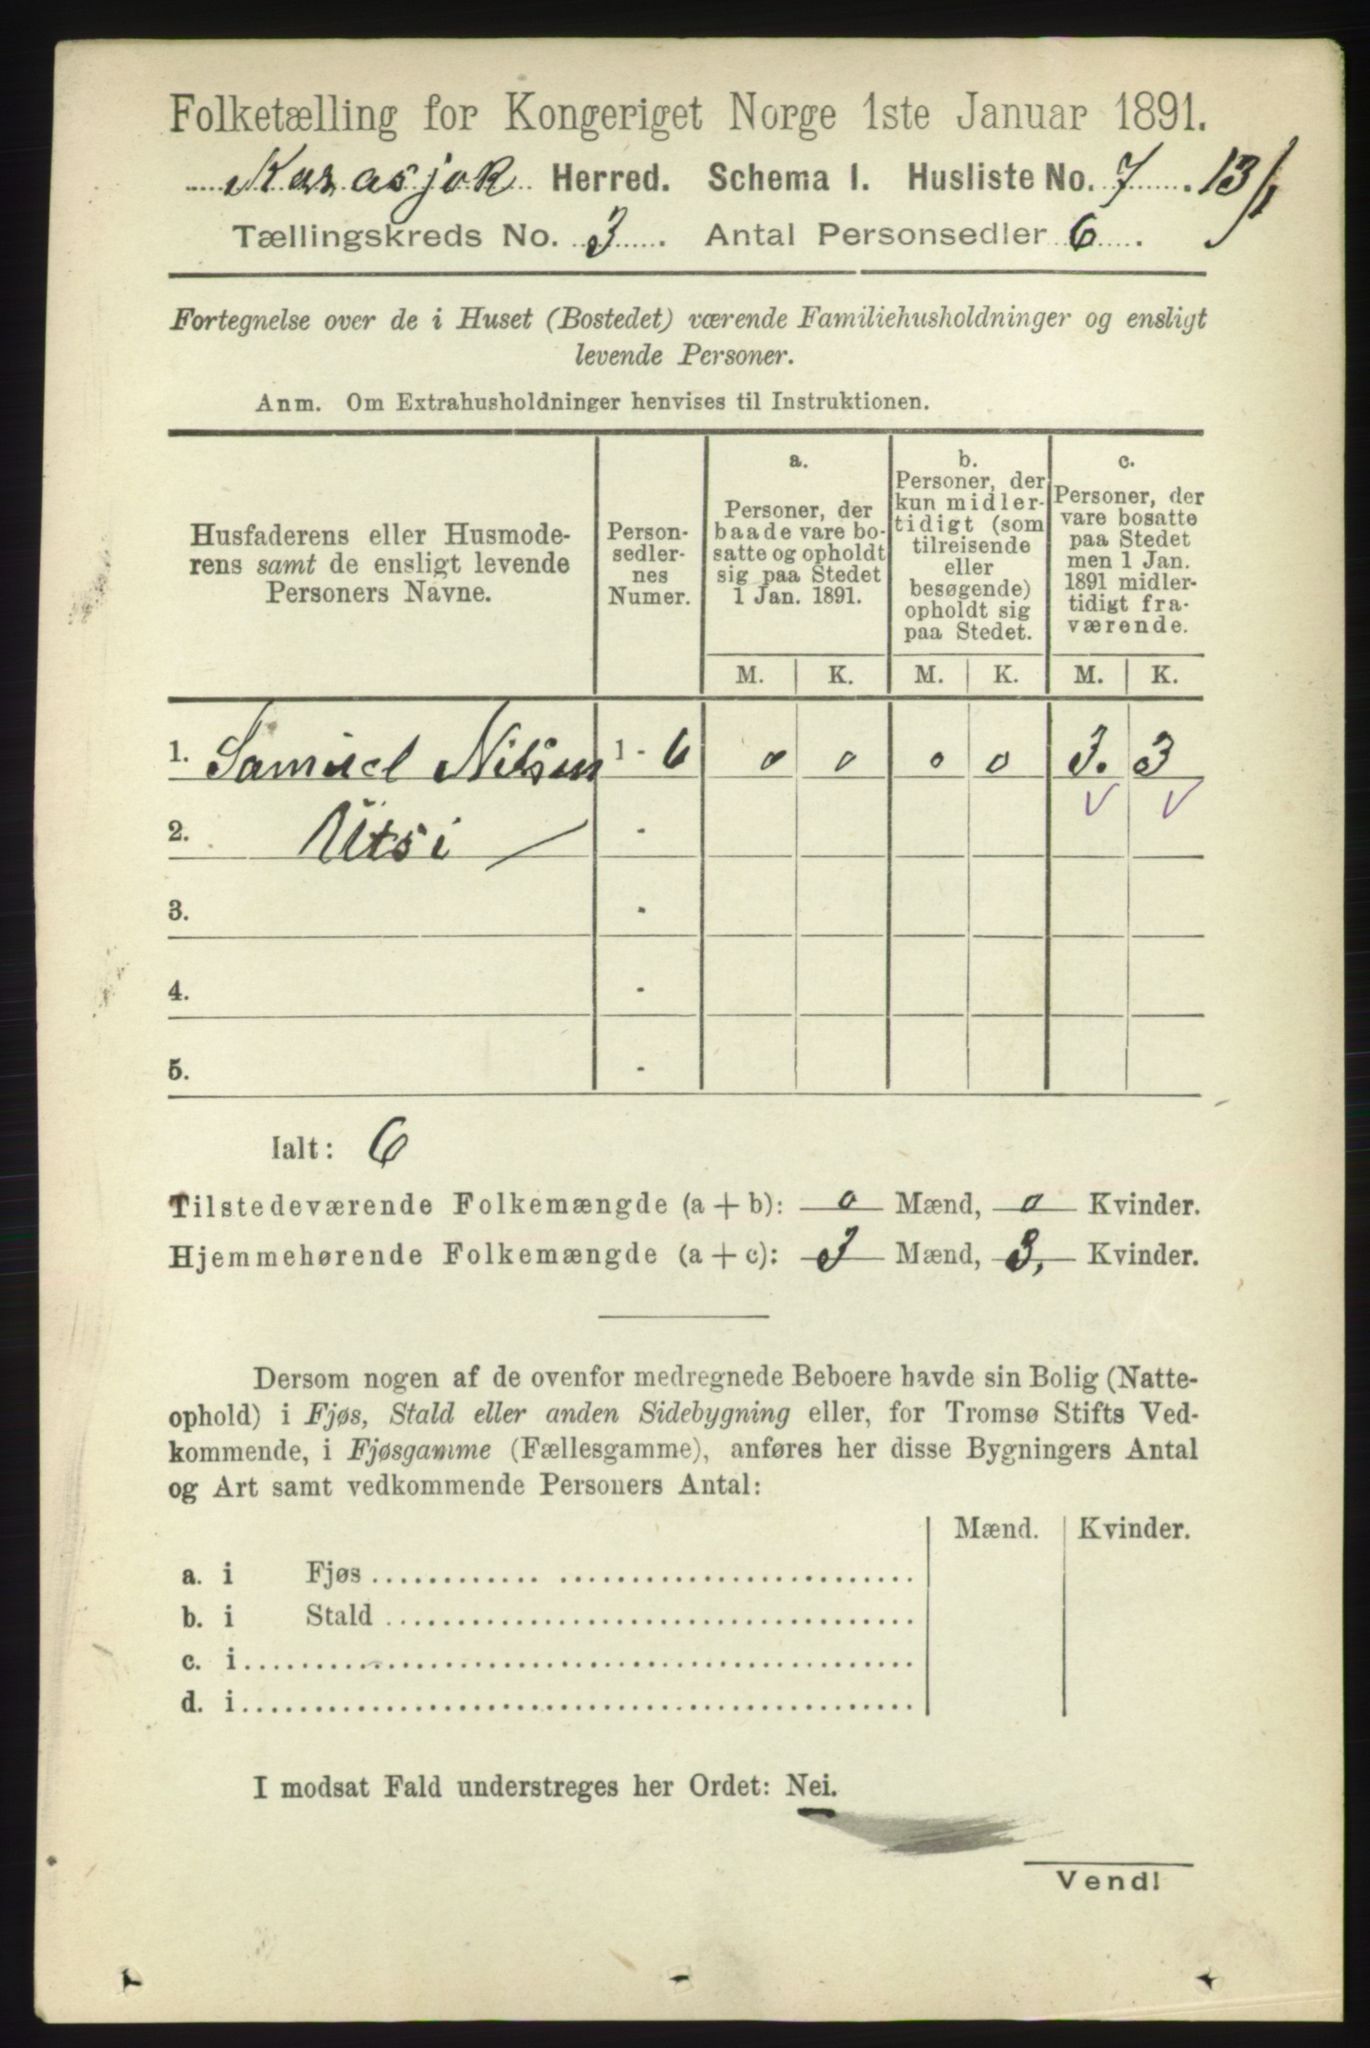 Folketælling for Kongeriget Norge 1ste Januar 1891.
Karasjok Herred. Schema 1. Husliste No. 7 . 13/1
Tællingskreds No. 3 . Antal Personsedler 6 .
Fortegnelse over de i Huset (Bostedet) værende Familiehusholdninger og ensligt
levende Personer.
Anm. Om Extrahusholdninger henvises til Instruktionen.
Husfaderens eller Husmode-
rens samt de ensligt levende
Personers Navne.
Person-
sedler-
nes
Numer.
a.
Personer, der
baade vare bo-
satte og opholdt
sig paa Stedet
1 Jan. 1891.
b.
Personer, der
kun midler-
tidigt (som
tilreisende
eller
besøgende)
opholdt sig
paa Stedet.
c.
Personer, der
vare bosatte
paa Stedet
men 1 Jan.
1891 midler-
tidigt fra-
værende.
M. K. M. K. M. K.
1. Samuel Nilsen 1 - 6 0 0 0 0 3. 3
2. Utsi -
3. -
4. -
5. -
Ialt: 6
Tilstedeværende Folkemængde (a + b): 0 Mænd, 0 Kvinder.
Hjemmehørende Folkemængde (a + c): 3 Mænd, 3, Kvinder.
Dersom nogen af de ovenfor medregnede Beboere havde sin Bolig (Natte-
ophold) i Fjøs, Stald eller anden Sidebygning eller, for Tromsø Stifts Ved-
kommende, i Fjøsgamme (Fællesgamme), anføres her disse Bygningers Antal
og Art samt vedkommende Personers Antal:
Mænd. Kvinder.
a. i Fjøs
b. i Stald
c. i
d. i
I modsat Fald understreges her Ordet: Nei.
Vend!